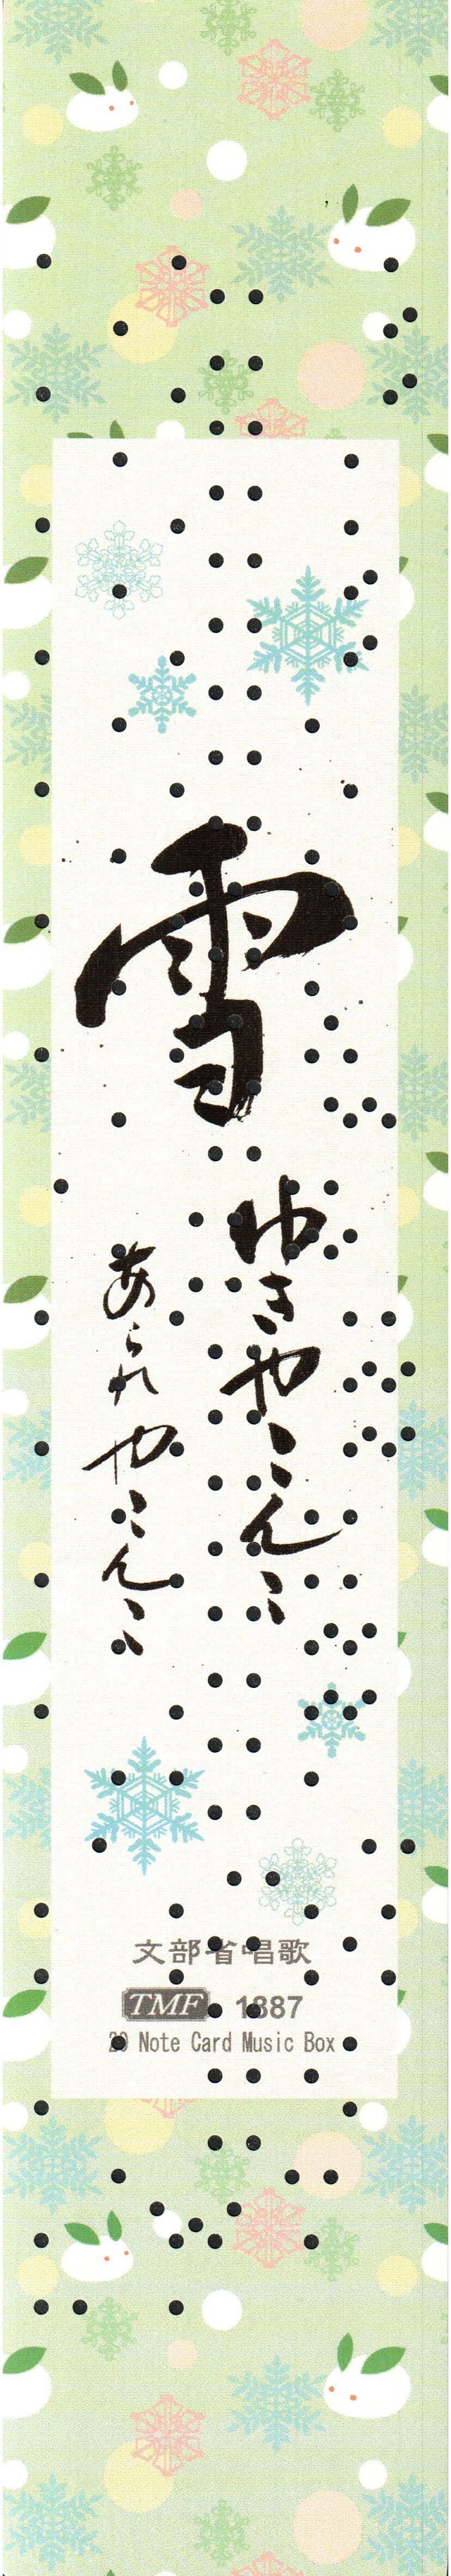 雪
ゆきやこんこ
あられやこんこ
文部省唱歌
TMF 1887
20 Note Card Music Box